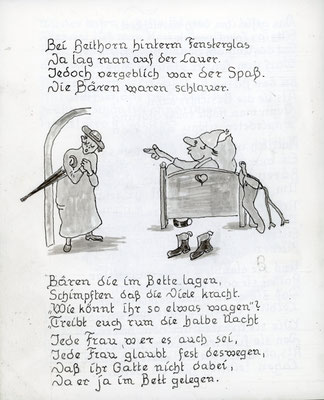 Bei Reithorn hinterm Fensterglas
Da lag man auf der Lauer.
Jedoch vergeblich war der Spaß.
Die Bären waren schlauer.
Bären die im Bette lagen,
Schimpften daß die Diele kracht.
"Wie könnt ihr so etwas wagen"?
Treibt euch rum die halbe Nacht
Jede Frau, wer es auch sei,
Jede Frau glaubt fest deswegen,
Daß ihr Gatte nicht dabei,
Da er ja im Bett gelegen.